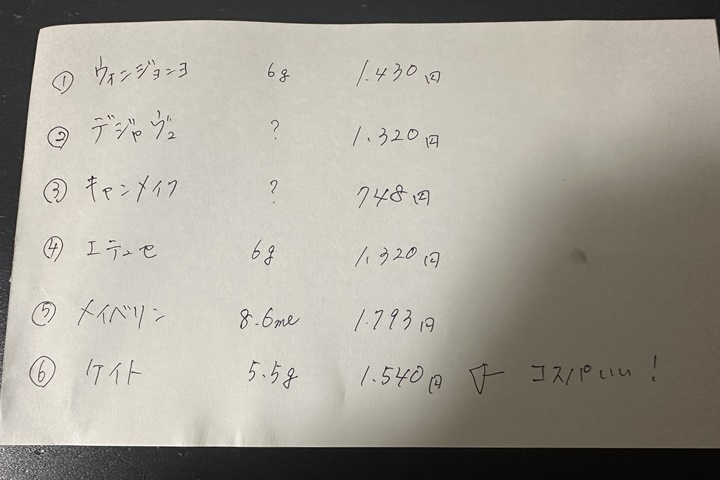 ① ウォンジョンヨ 6g 1.430円
② デジャヴュ ? 1.320円
③ キャンメイク ? 748円
④ エテュセ 6g 1.320円
⑤ メイベリン 8.6ml 1.793円
⑥ ケイト 5.5g 1.540円 ← コスパいい!